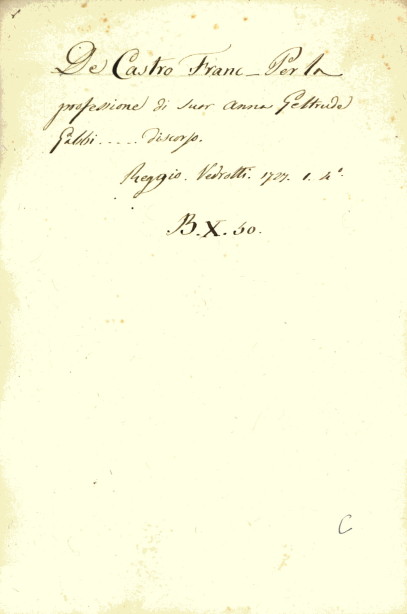 De Castro Franc_ Per la
professione di suor anna Geltrude
Gabbi ..... discorso.
Reggio. Vedrotti. 1727. 1. 4°.
B. X. 50.
C